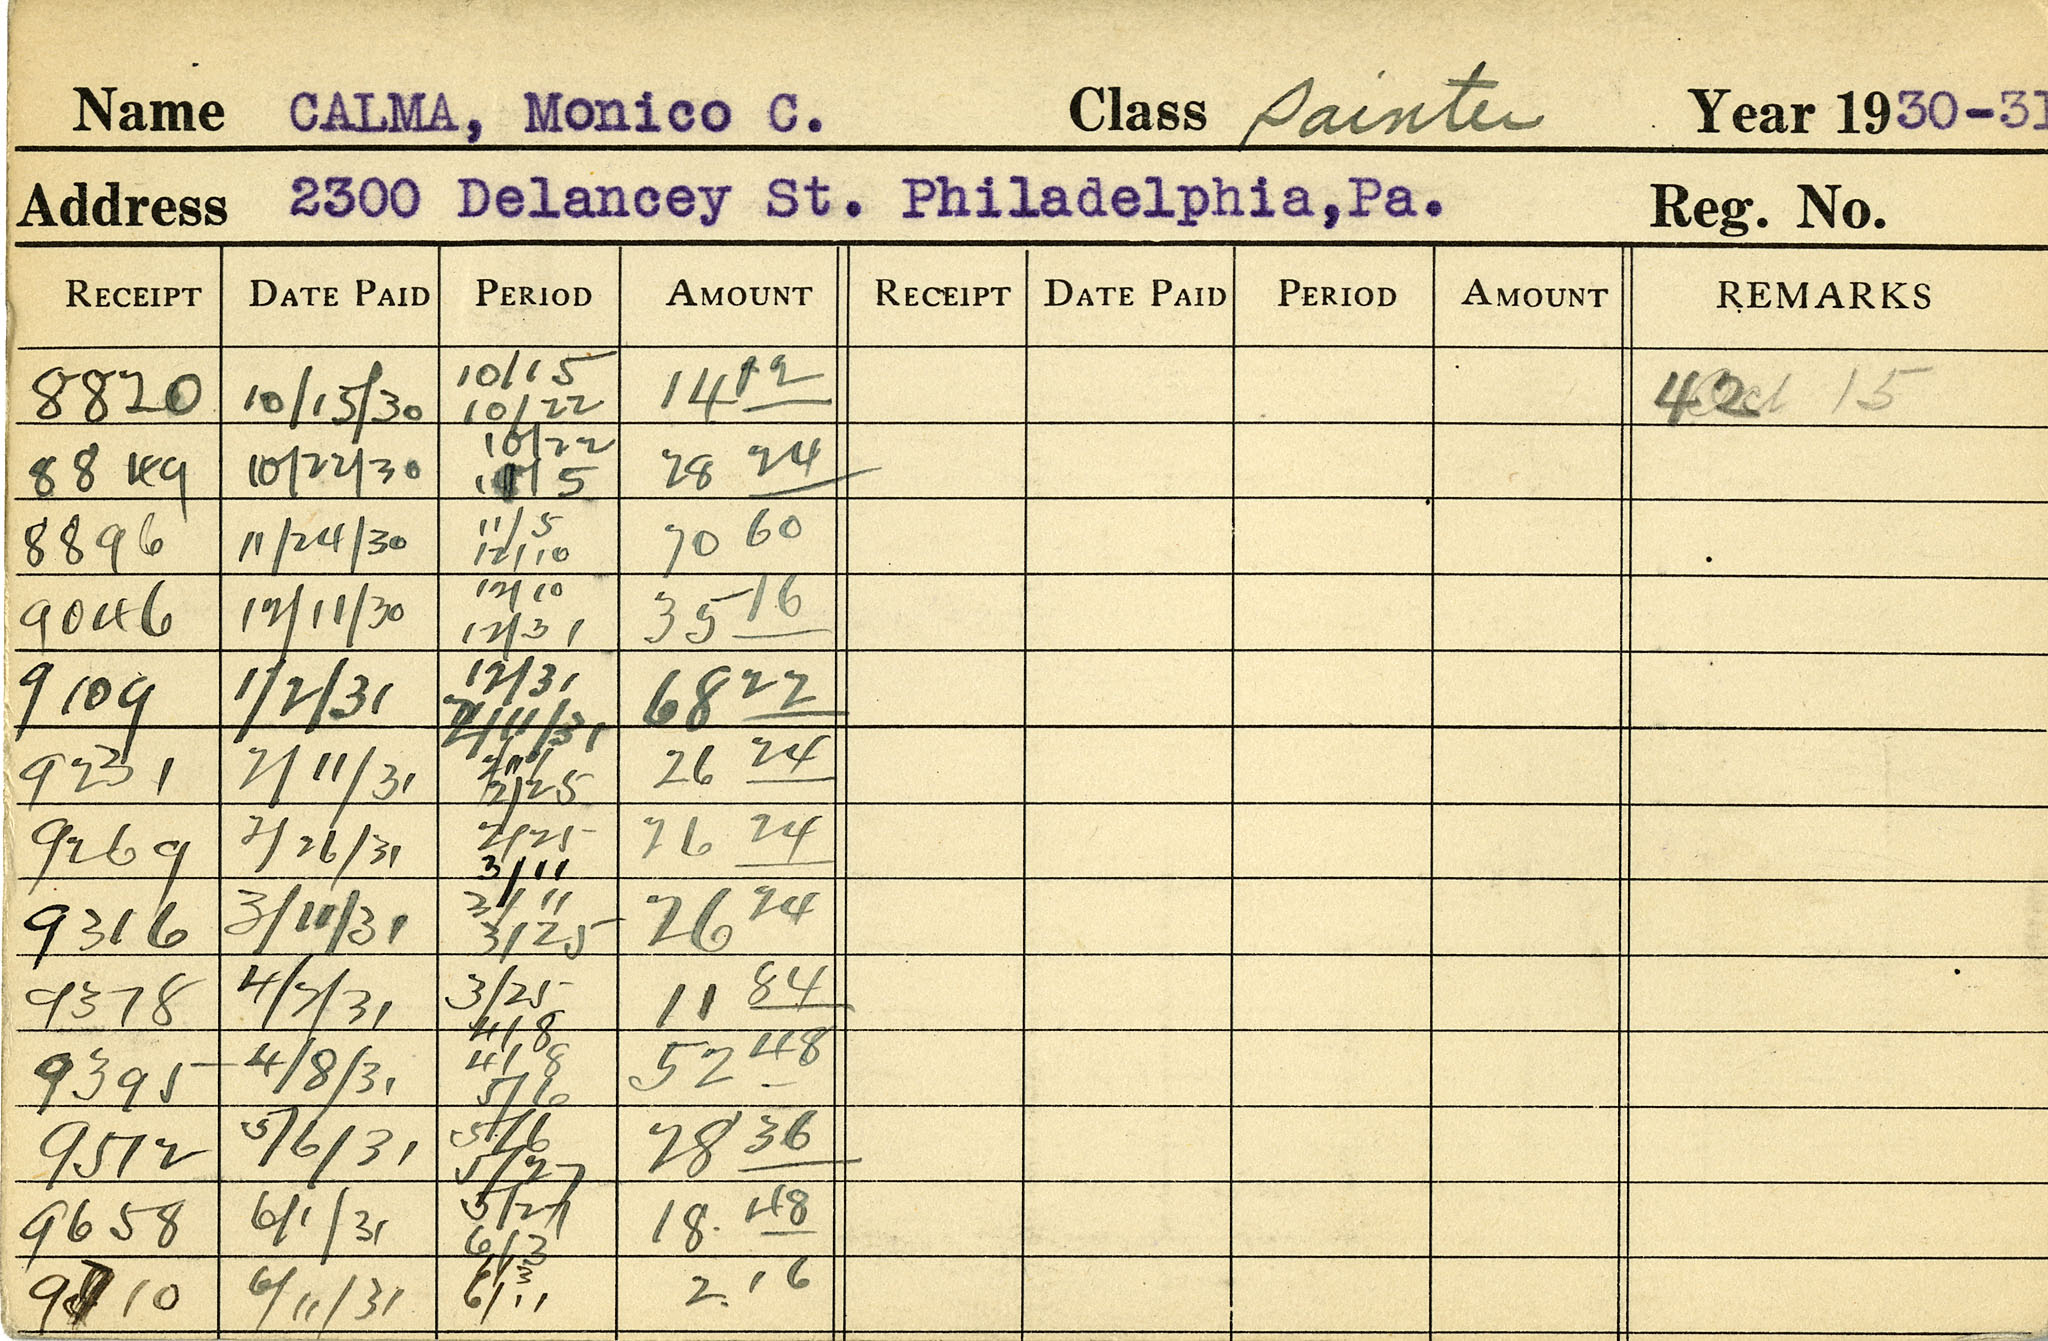 Name CALMA, Monico C. Class Painter Year 1930-31
Address 2300 Delancey St. Philadelphia,Pa. Reg. No.
RECEIPT DATE PAID PERIOD AMOUNT RECEIPT DATE PAID PERIOD AMOUNT REMARKS
8820 10/15/30 10/15 10/22 14 12 42 15
8849 10/22/30 10/22 11/5 28 24
8896 11/24/30 11/5 12/10 70 60
9046 12/11/30 12/10 12/31 35 16
9109 1/2/31 12/31 2/11/31 68 22
9231 2/11/31 2/25 26 24
9269 2/26/31 2/25 3/11 26 24
9316 3/11/31 3/11 3/25 26 24
9378 4/7/31 3/25 4/8 11 84
9395 4/8/31 4/8 5/6 52 48
9512 5/6/31 5/6 5/27 28 36
9658 6/1/31 5/27 6/3 18. 48
9710 6/11/31 6/3 6/11 2. 16